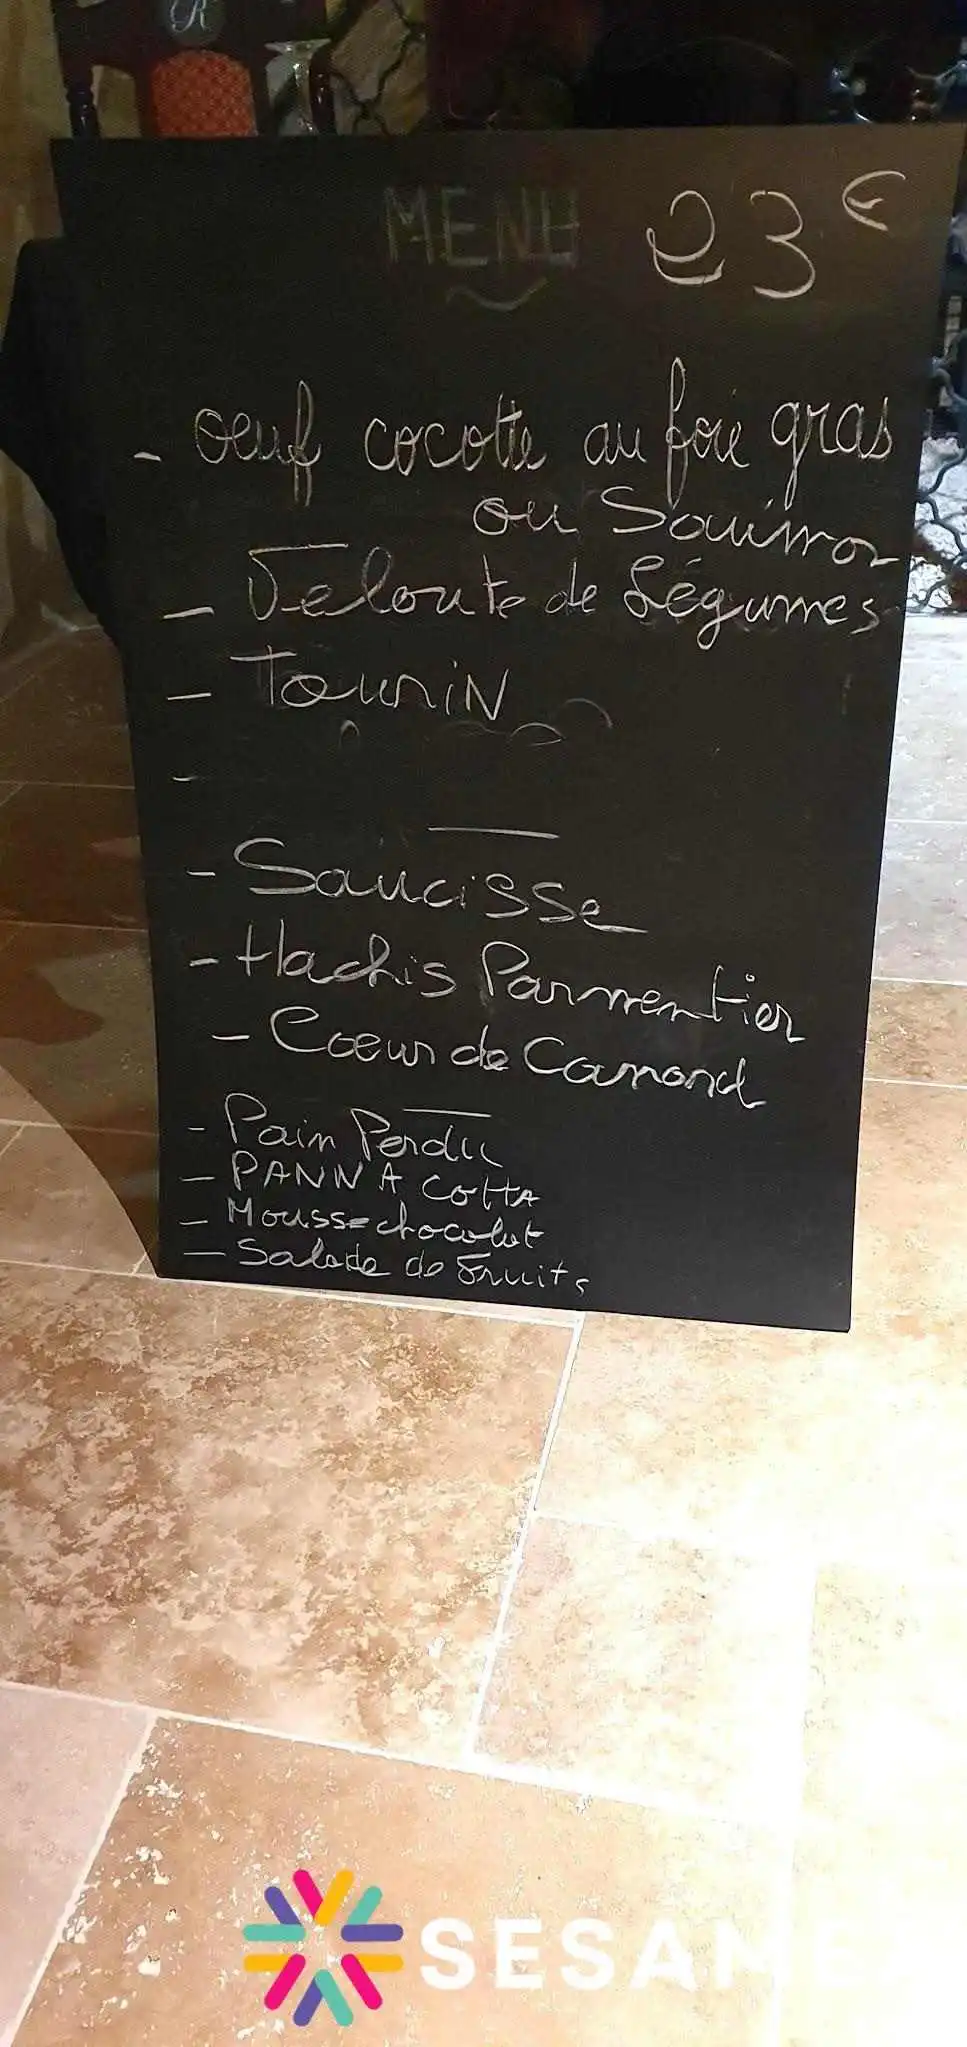 R
MENU 23€
- oeuf cocotte au foie gras
ou Saumon
- Velouté de Légumes
- TouriN
-
- Saucisse
- Hachis Parmentier
- Coeur de Canard
- Pain Perdu
- PANNA COTTA
- Mousse chocolat
- Salade de Fruits